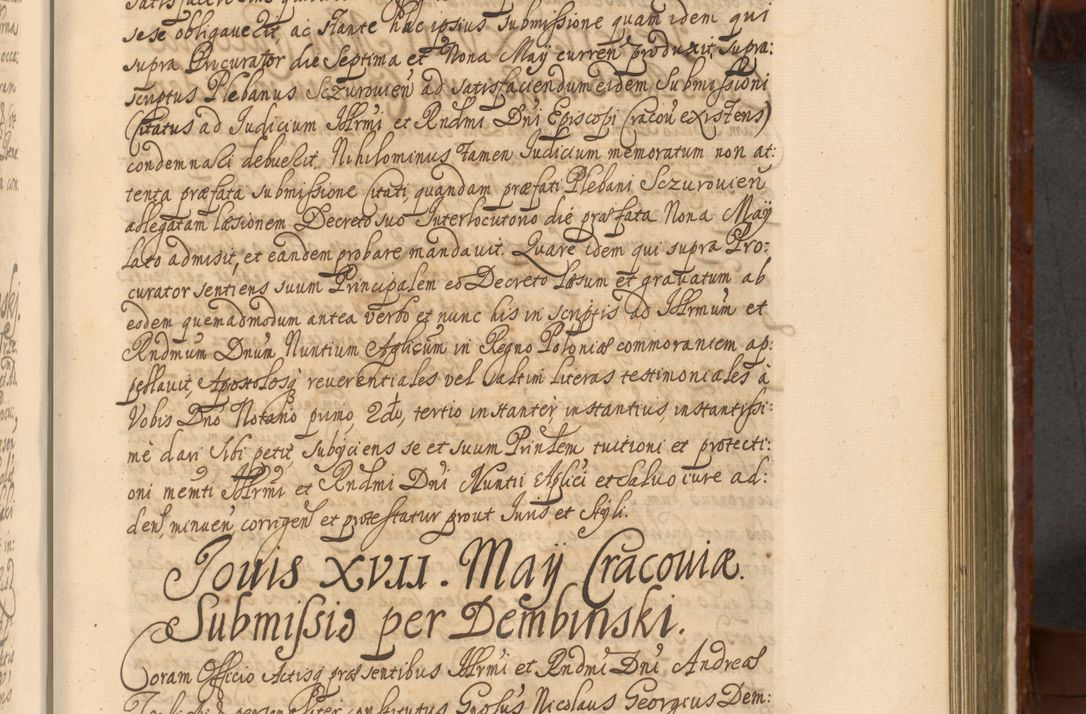 sese obligavecit, ac stante hac ipsius submissione quam idem qui
supra Procurator die Septima et Nona Maÿ curren produxit, supra:
scriptus Plebanus Sczurovien ad satisfaciendum eidem Submissioni
(Citatus ad Judicium Illrmi et Rndmi Dni Episcopi Cracov existens)
condemnaci debuecit. Nihilominus tamen Judicium memoratum non at:
tenta præfata submissione Citati, quandam præfati Plebani Sczurovien
adlegatam læsionem Decreto suo Interlocutorio die præfata Nona Maÿ
lato admisit, et eandem probare mandavit. Quare idem qui supra Pro:
curator sentiens suum Principalem eo Decreto læsum et gravatum ab
eodem quemadmodum antea verbo et nunc his in scriptis ad Illrmum et
Rndmum Dnum Nuntium Aplicum in Regno Poloniæ commorantem ap:
pellavit, Apostolosq reverentiales vel saltim literas testimoniales à
Vobis Dno Notario pumo, 2do, tertio, instanter, instantius, instantissi:
mè dari sibi petit, subÿciens se et suum Prinlem tuitioni et protecti:
oni memti Illrmi et Rndmi Dni Nuntii Aplici et salvo iure ad:
den, minuen, corrigen et protestatur prout Juris et Styli.
Jovis XVII. Maÿ Cracoviæ.
Submissio per Dembinski.
Coram Officio Actisq præsentibus Illrmi et Rndmi Dni Andreæ
constitutus Gnosus Nicolaus Georgius Dem: